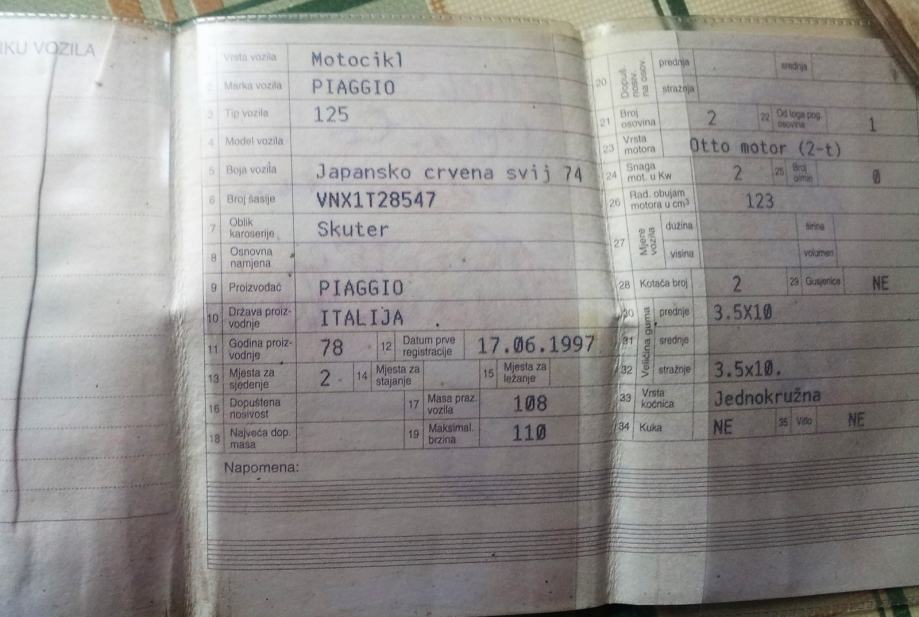 KU VOZILA
Vrsta vozila Motocikl
2 Marka vozila PIAGGIO
3 Tip vozila 125
4 Model vozila
5 Boja vozila Japansko crvena svij 74
6 Broj šasije VNX1T28547
7 Oblik karoserije Skuter
8 Osnovna namjena
9 Proizvođač PIAGGIO
10 Država proiz-vodnje ITALIJA
11 Godina proiz-vodnje 78 12 Datum prve registracije 17.06.1997
13 Mjesta za sjedenje 2 14 Mjesta za stajanje 15 Mjesta za ležanje
16 Dopuštena nosivost 17 Masa praz. vozila 108
18 Najveća dop. masa 19 Maksimal. brzina 110
Napomena:
20 Dopuš. nosiv. na osov. prednja srednja
stražnja
21 Broj osovina 2 22 Od toga pog. osovina 1
23 Vrsta motora Otto motor (2-t)
24 Snaga mot. u Kw 2 25 Broj 0
26 Rad. obujam motora u cm³ 123
27 Mjere vozila dužina širina
visina volumen
28 Kotača broj 2 29 Gusjenice NE
30 Veličina guma prednje 3.5X10
31 srednje
32 stražnje 3.5x10.
33 Vrsta kočnica Jednokružna
34 Kuka NE 35 Vitlo NE